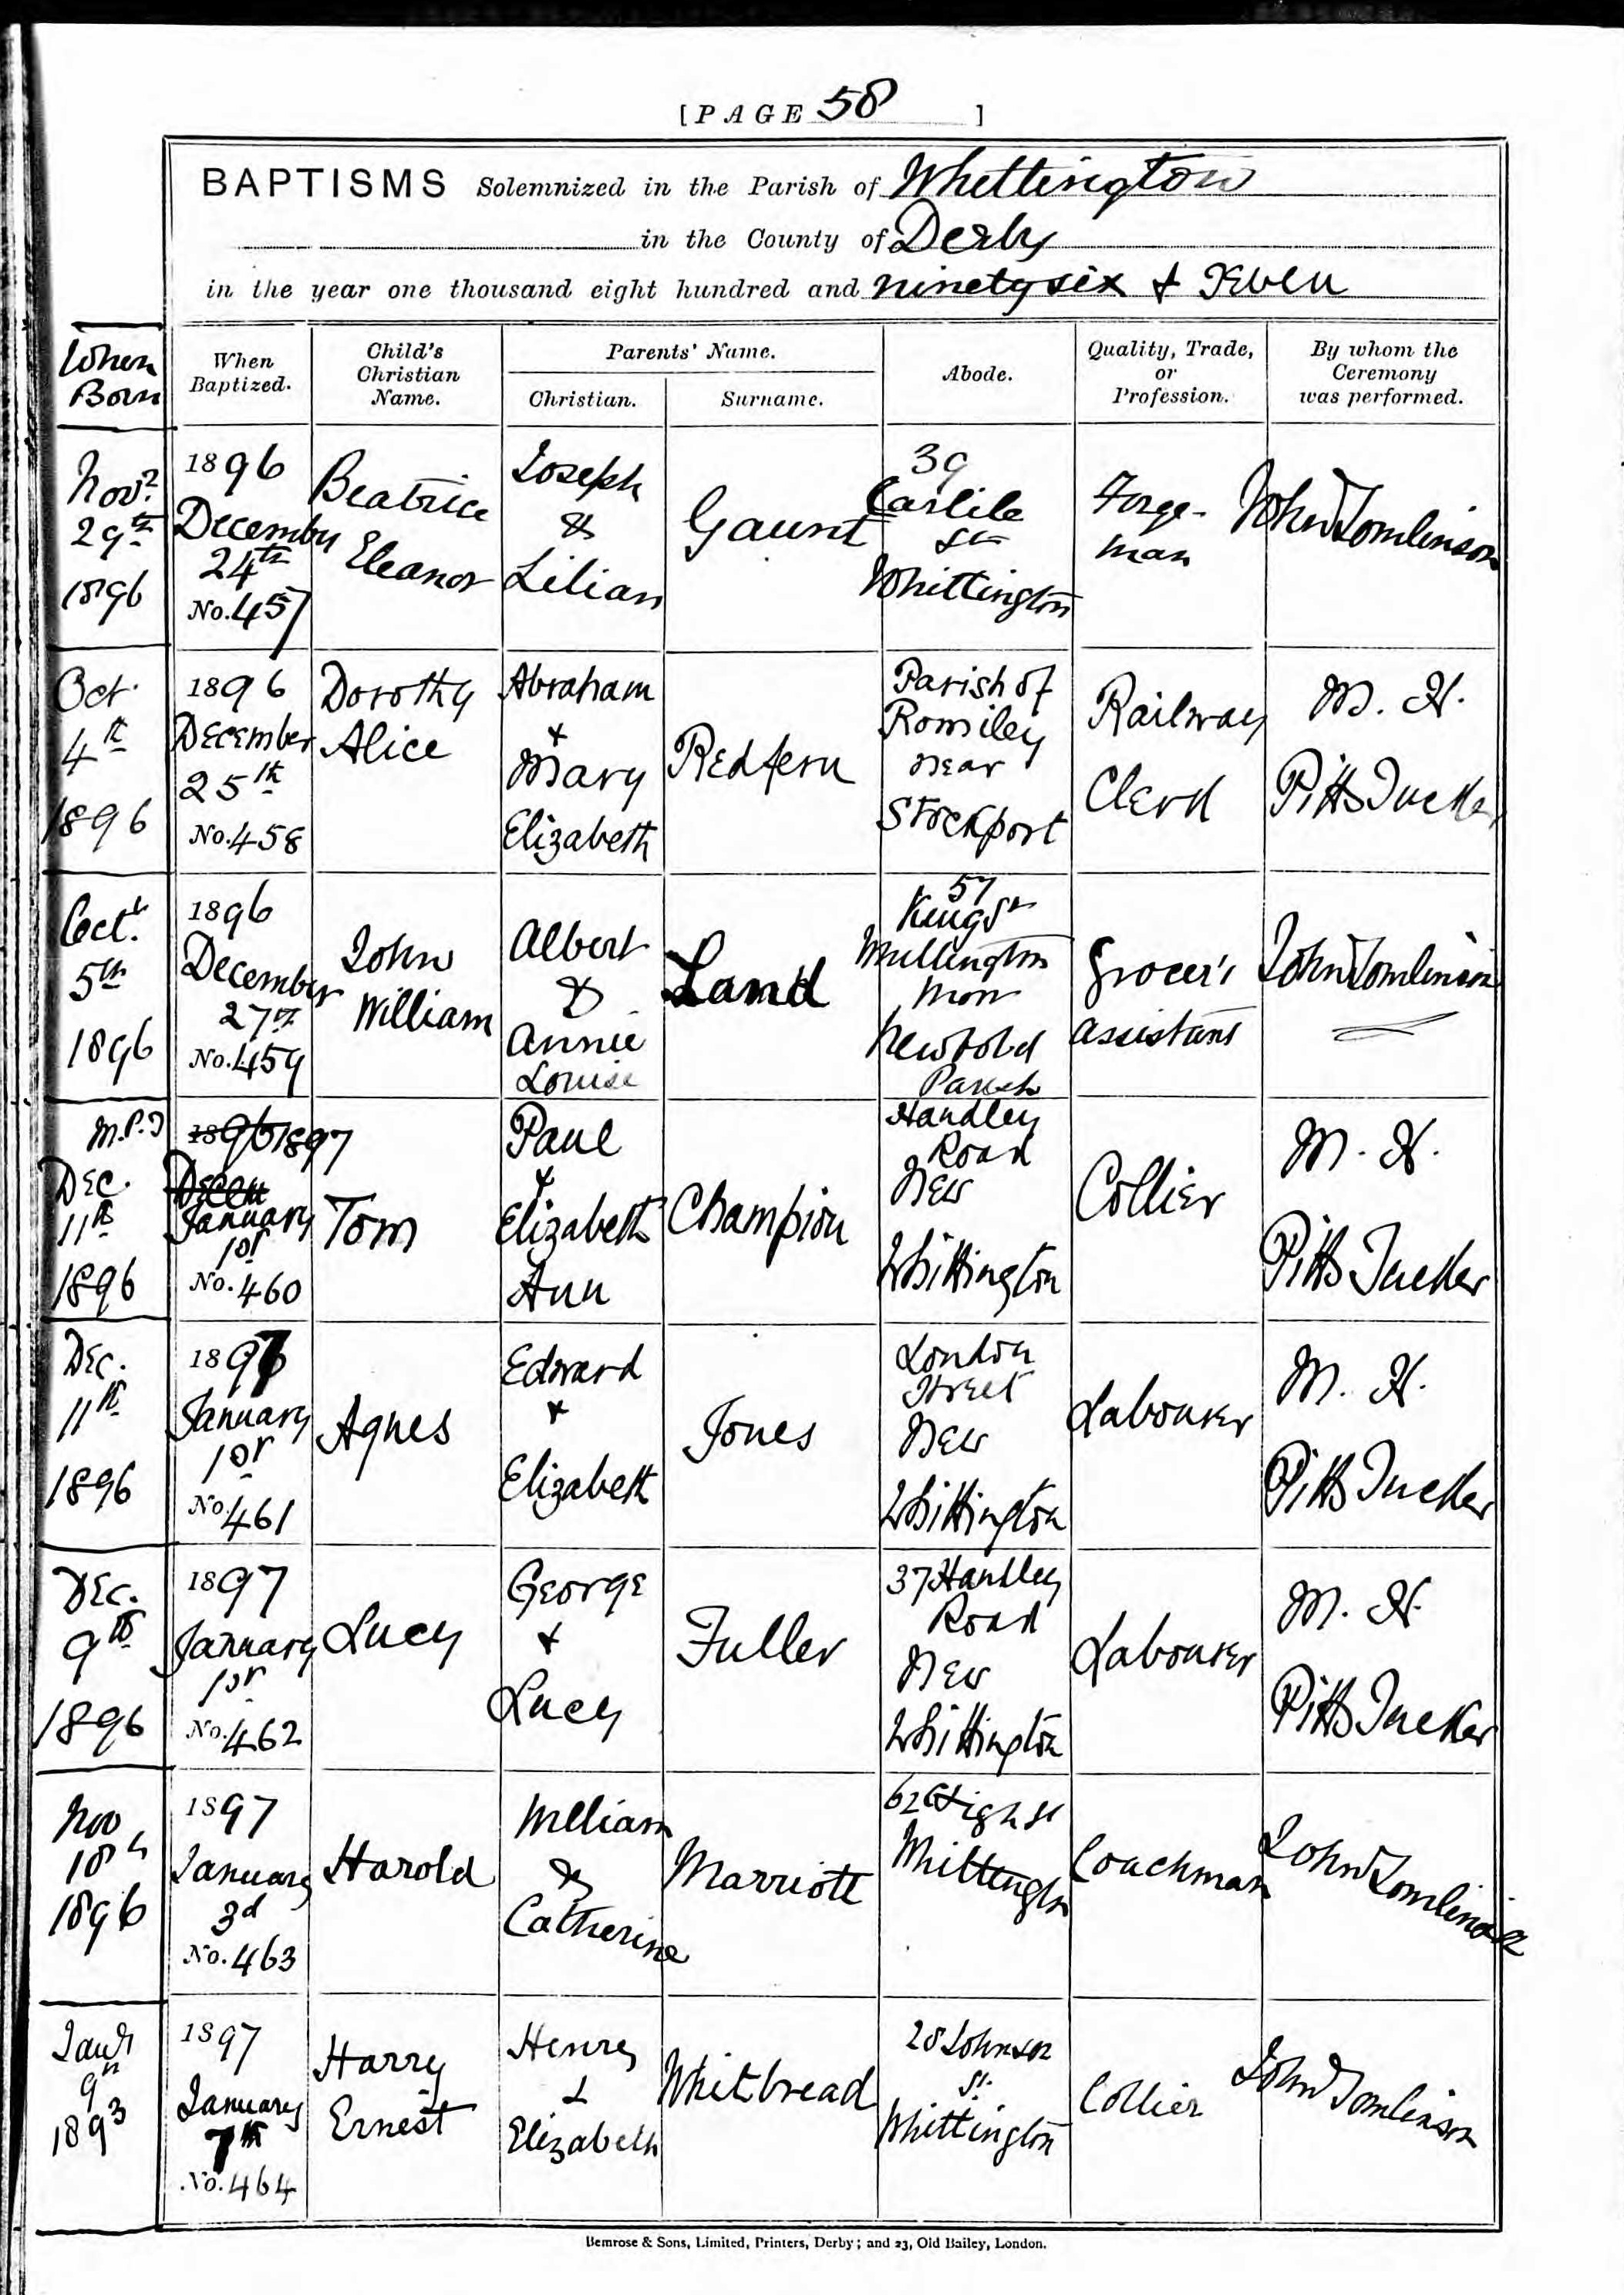 [PAGE 58 ]
BAPTISMS Solemnized in the Parish of Whittington
in the County of Derby
in the year one thousand eight hundred and ninety six & seven
When Born
When Baptized.
Child's Christian Name.
Parents' Name.
Christian.
Surname.
Abode.
Quality, Trade, or Profession.
By whom the Ceremony was performed.
Novr.
29th
1896
1896
December
24th
No. 457
Beatrice
Eleanor
Joseph
&
Lilian
Gaunt
39
Carlile
St
Whittington
Forge-
man
John Tomlinson
Oct.
4th
1896
1896
December
25th
No. 458
Dorothy
Alice
Abraham
+
Mary
Elizabeth
Redfern
Parish of
Romiley
near
Stockport
Railway
Clerk
M. H.
Pitts Tucker
Oct.
5th
1896
1896
December
27th
No. 459
John
William
Albert
&
Annie
Louise
Land
57
King St
Whittington
Moor
Newbold
Parish
Grocer's
assistant
John Tomlinson
M.P.T
Dec.
11th
1896
1896 1897
Decem
January
1st
No. 460
Tom
Paul
+
Elizabeth
Ann
Champion
Handley
Road
New
Whittington
Collier
M. H.
Pitts Tucker
Dec.
11th
1896
1897
January
1st
No. 461
Agnes
Edward
+
Elizabeth
Jones
London
Street
New
Whittington
Labourer
M. H.
Pitts Tucker
Dec.
9th
1896
1897
January
1st
No. 462
Lucy
George
+
Lucy
Fuller
37 Handley
Road
New
Whittington
Labourer
M. H.
Pitts Tucker
Nov
18th
1896
1897
January
3d
No. 463
Harold
William
&
Catherine
Marriott
62 High St
Whittington
Coachman
John Tomlinson
Jany
9th
1893
1897
January
7th
No. 464
Harry
Ernest
Henry
&
Elizabeth
Whitbread
28 Johnson
St.
Whittington
Collier
John Tomlinson
Bemrose & Sons, Limited, Printers, Derby; and 23, Old Bailey, London.